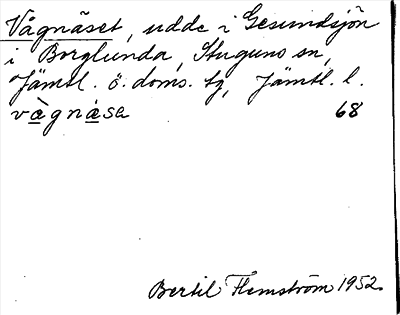 Vågnäset, udde i Gesundsjön
i Borglunda, Stuguns sn,
Jämtl. ö. doms. tg, Jämtl. l.
vå̀gnä́sa 68
Bertil Flemström 1952